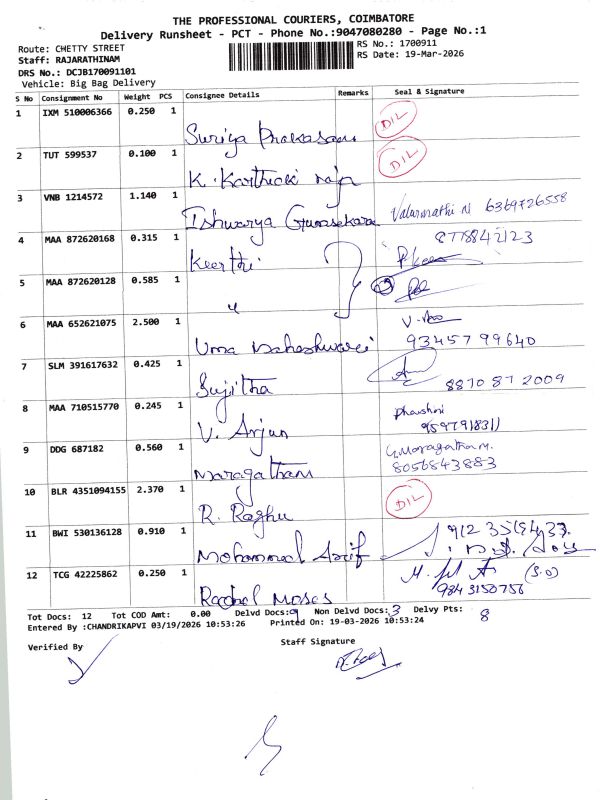 THE PROFESSIONAL COURIERS, COIMBATORE
Delivery Runsheet - PCT - Phone No.:9047080280 - Page No.:1
Route: CHETTY STREET
RS No.: 1700911
Staff: RAJARATHINAM
RS Date: 19-Mar-2026
DRS No.: DCJB170091101
Vehicle: Big Bag Delivery
S No Consignment No Weight PCS Consignee Details Remarks Seal & Signature
1 IXM 510006366 0.250 1 Suriya Prakasam DIL
2 TUT 599537 0.100 1 K. Karthick raja DIL
3 VNB 1214572 1.140 1 Ishwarya Gunasekara Valarmathi N 6369726558
4 MAA 872620168 0.315 1 Keerthi 8778842123
5 MAA 872620128 0.585 1 "
6 MAA 652621075 2.500 1 Uma Maheshwari 93457 99640
7 SLM 391617632 0.425 1 Sujitha 8870 87 2009
8 MAA 710515770 0.245 1 V. Arjun 9597918311
9 DDG 687182 0.560 1 Maragatham G.Maragatham. 8056843883
10 BLR 4351094155 2.370 1 R. Raghu DIL
11 BWI 530136128 0.910 1 Mohammed Asif
12 TCG 42225862 0.250 1 Rachal Moses (S.O) 9843150756
Tot Docs: 12 Tot COD Amt: 0.00 Delvd Docs:9 Non Delvd Docs:3 Delvy Pts: 8
Entered By :CHANDRIKAPVI 03/19/2026 10:53:26 Printed On: 19-03-2026 10:53:24
Verified By
Staff Signature